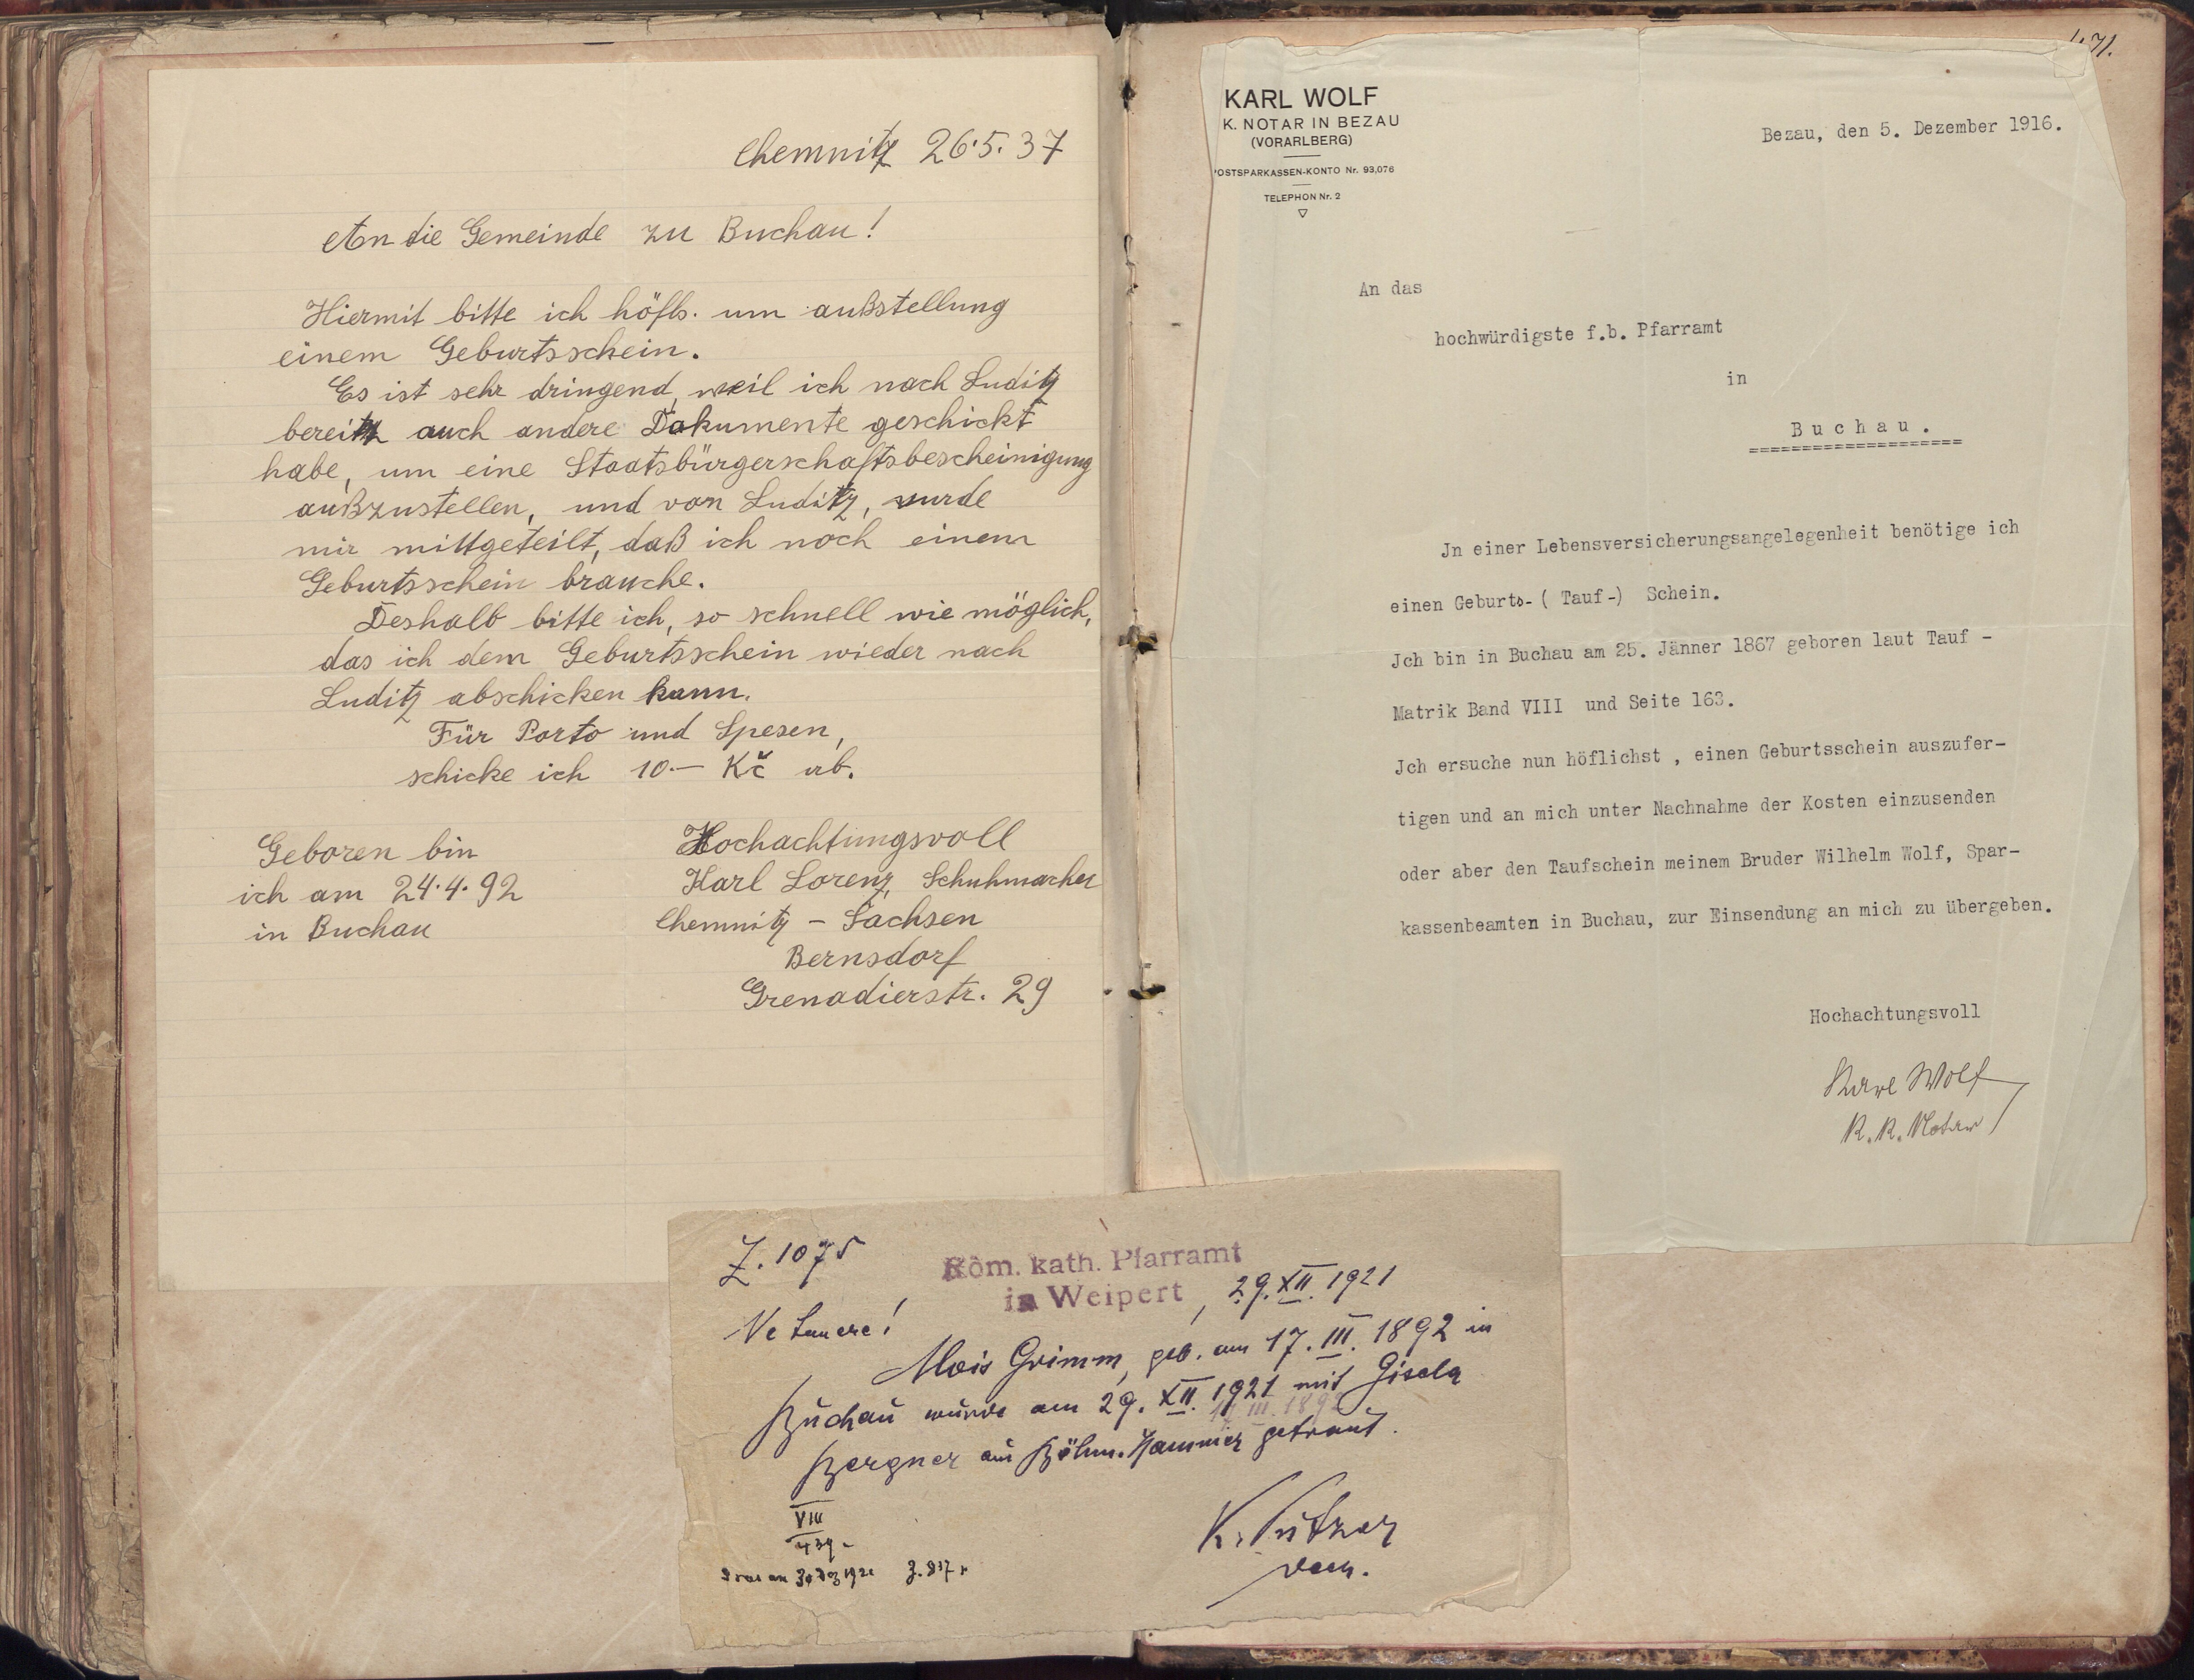 Chemnitz 26.5.37
An die Gemeinde zu Buchau!
Hiermit bitte ich höfls. um außstellung
einem Geburtsschein.
Es ist sehr dringend, weil ich nach Luditz
bereits auch andere Dokumente geschickt
habe, um eine Staatsbürgerschaftsbescheinigung
außzustellen, und von Luditz, wurde
mir mittgeteilt, daß ich noch einem
Geburtsschein brauche.
Deshalb bitte ich, so schnell wie möglich,
das ich dem Geburtsschein wieder nach
Luditz abschicken kann.
Für Porto und Spesen,
schicke ich 10.— Kč ab.
Geboren bin
ich am 24.4.92
in Buchau
Hochachtungsvoll
Karl Lorenz, Schuhmacher
Chemnitz – Sachsen
Bernsdorf
Grenadierstr. 29
71.
KARL WOLF
K. NOTAR IN BEZAU
(VORARLBERG)
OSTSPARKASSEN-KONTO Nr. 93,076
TELEPHON Nr. 2
Bezau, den 5. Dezember 1916.
An das
hochwürdigste f.b. Pfarramt
in
Buchau.
Jn einer Lebensversicherungsangelegenheit benötige ich
einen Geburts- ( Tauf-) Schein.
Jch bin in Buchau am 25. Jänner 1867 geboren laut Tauf -
Matrik Band VIII und Seite 163.
Jch ersuche nun höflichst , einen Geburtsschein auszufer-
tigen und an mich unter Nachnahme der Kosten einzusenden
oder aber den Taufschein meinem Bruder Wilhelm Wolf, Spar-
kassenbeamten in Buchau, zur Einsendung an mich zu übergeben.
Hochachtungsvoll
Karl Wolf
K. K. Notar
Z. 1075
Röm. kath. Pfarramt
in Weipert, 29. XII. 1921
Ne temere!
Alois Grimm, geb. am 17. III. 1892 in
Buchau wurde am 29. XII. 1921 mit Gisela
17. III. 1892
Bergner aus Böhm. Hammer getraut.
K.
Dech.
VIII
439